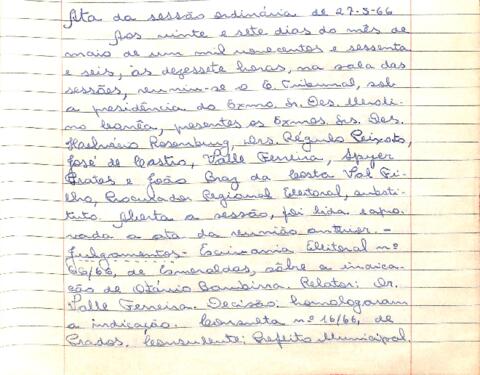 Ata da sessão ordinária de 27-5-66
Aos vinte e sete dias do mês de
maio de um mil novecentos e sessenta
e seis, às dezessete horas, na sala das
sessões, reuniu-se o E. Tribunal, sob
a presidência do Exmo. Sr. Des. Merolino
Corrêa, presentes os Exmos. Srs. Des.
Helvécio Rosenburg, Drs. Régulo Peixoto,
José de Castro, Valle Ferreira, Spyer
Prates e João Braz da Costa Val Fi-
lho, Procurador Regional Eleitoral, substi-
tuto. Aberta a sessão, foi lida e apro-
vada a ata da reunião anterior. -
Julgamentos - Escrivania Eleitoral nº
66/66, de Esmeraldas, sôbre a indica-
ção de Otávio Bambirra. Relator: Dr.
Valle Ferreira. Decisão: homologaram
a indicação. Consulta nº 16/66, de
Prados. Consulente: Prefeito Municipal.